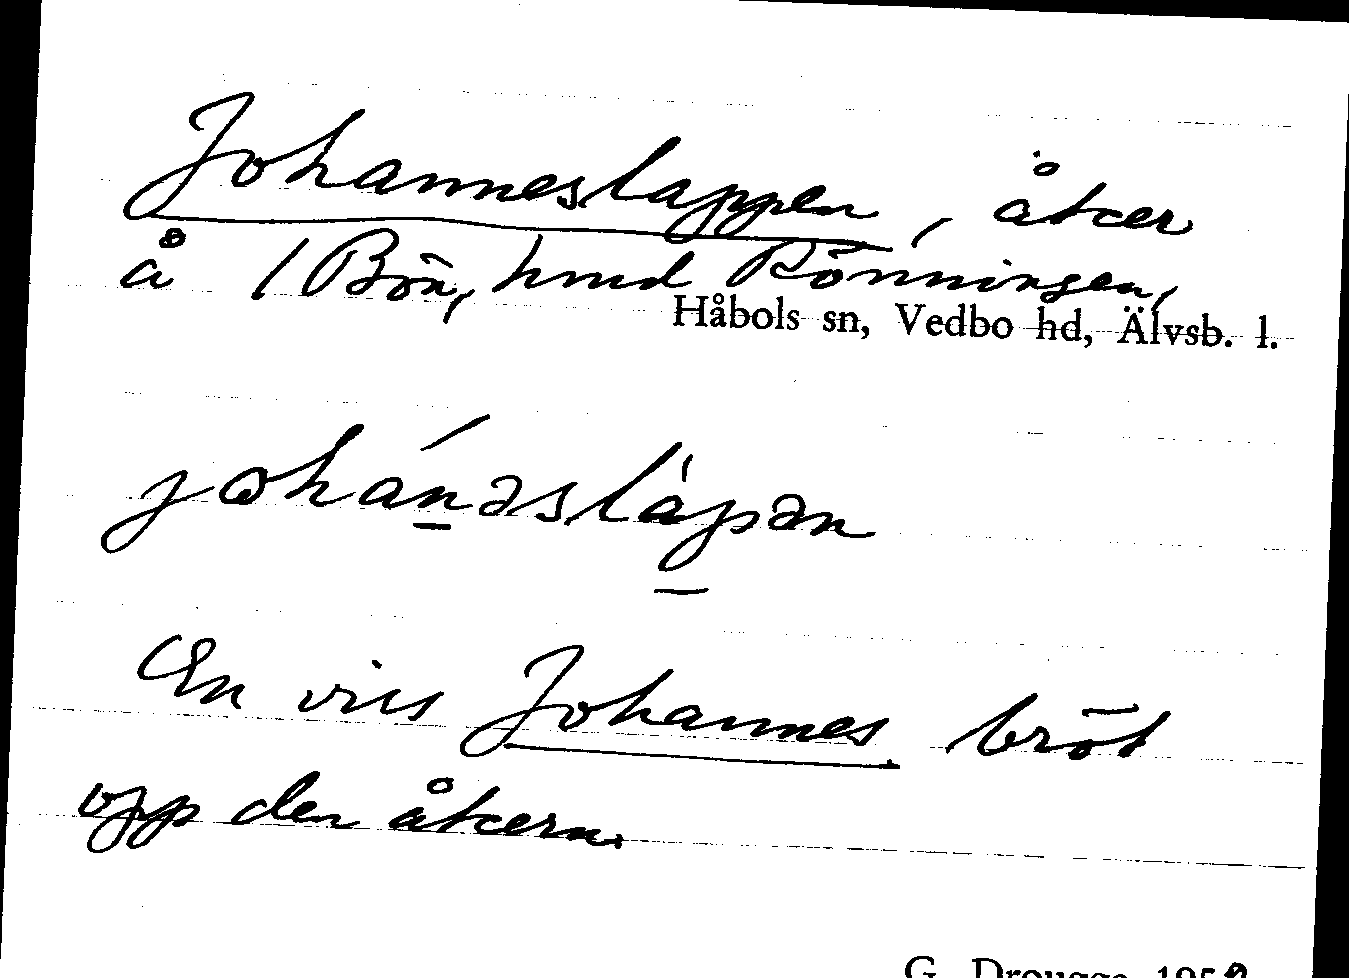 Johanneslappen, åker
å 1 Bön, hmd Rönningen,
Håbols sn, Vedbo hd, Älvsb. l.
johánəslápən
En viss Johannes bröt
opp den åkern.
G. Drougge 1952